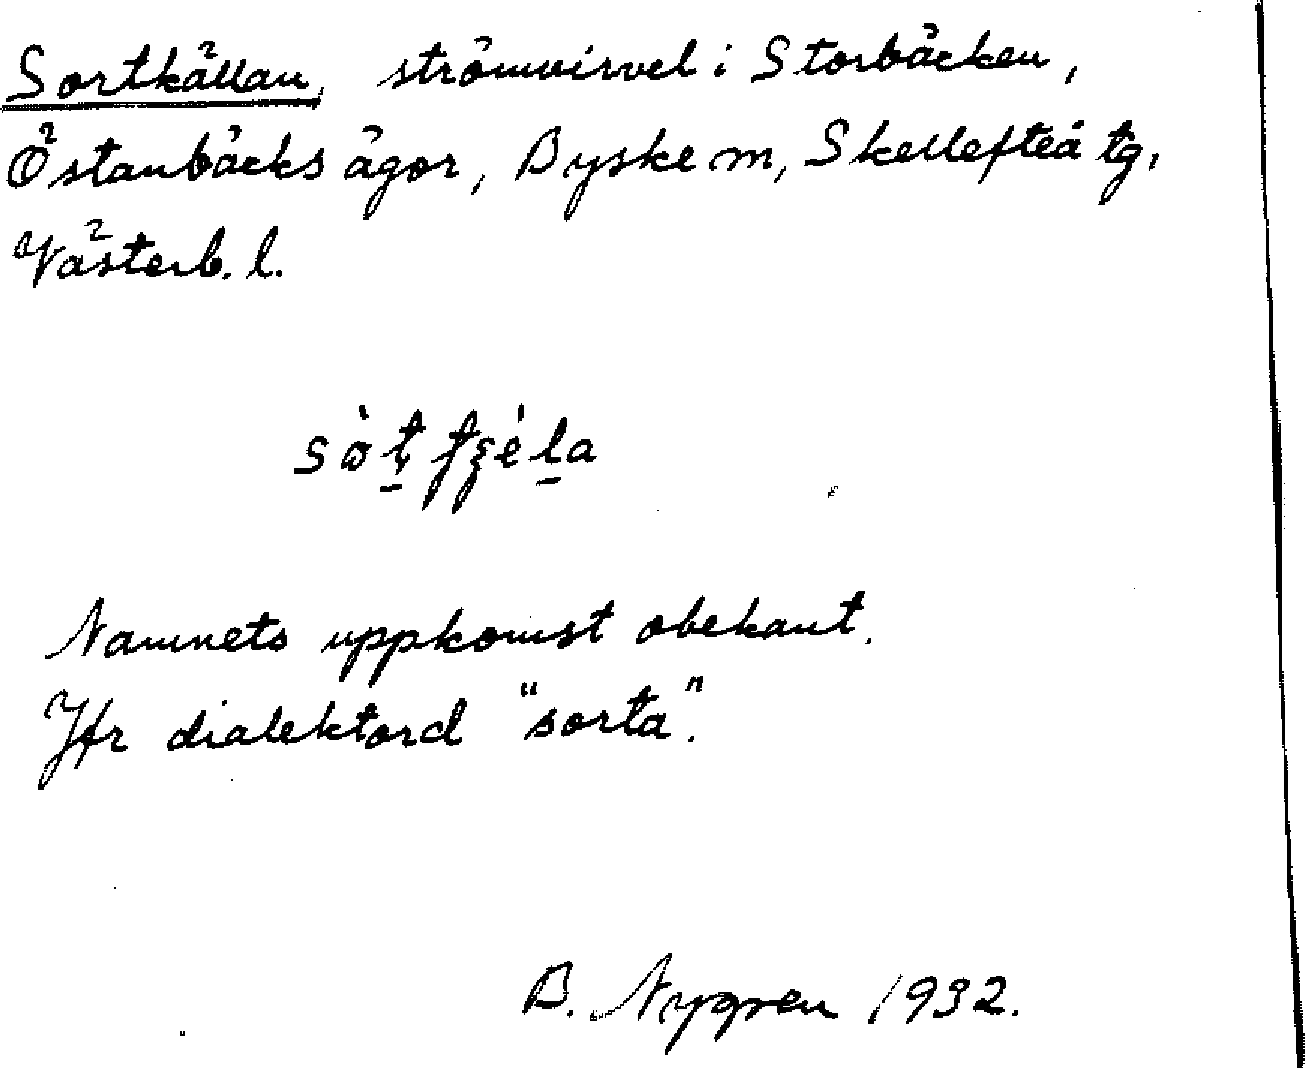 Sortkällan, strömvirvel i Storbäcken,
Östanbäcks ägor, Byske m, Skellefteå tg,
Västerb. l.
Namnets uppkomst obekant.
Jfr dialektord "sorta".
B. Nygren 1932.